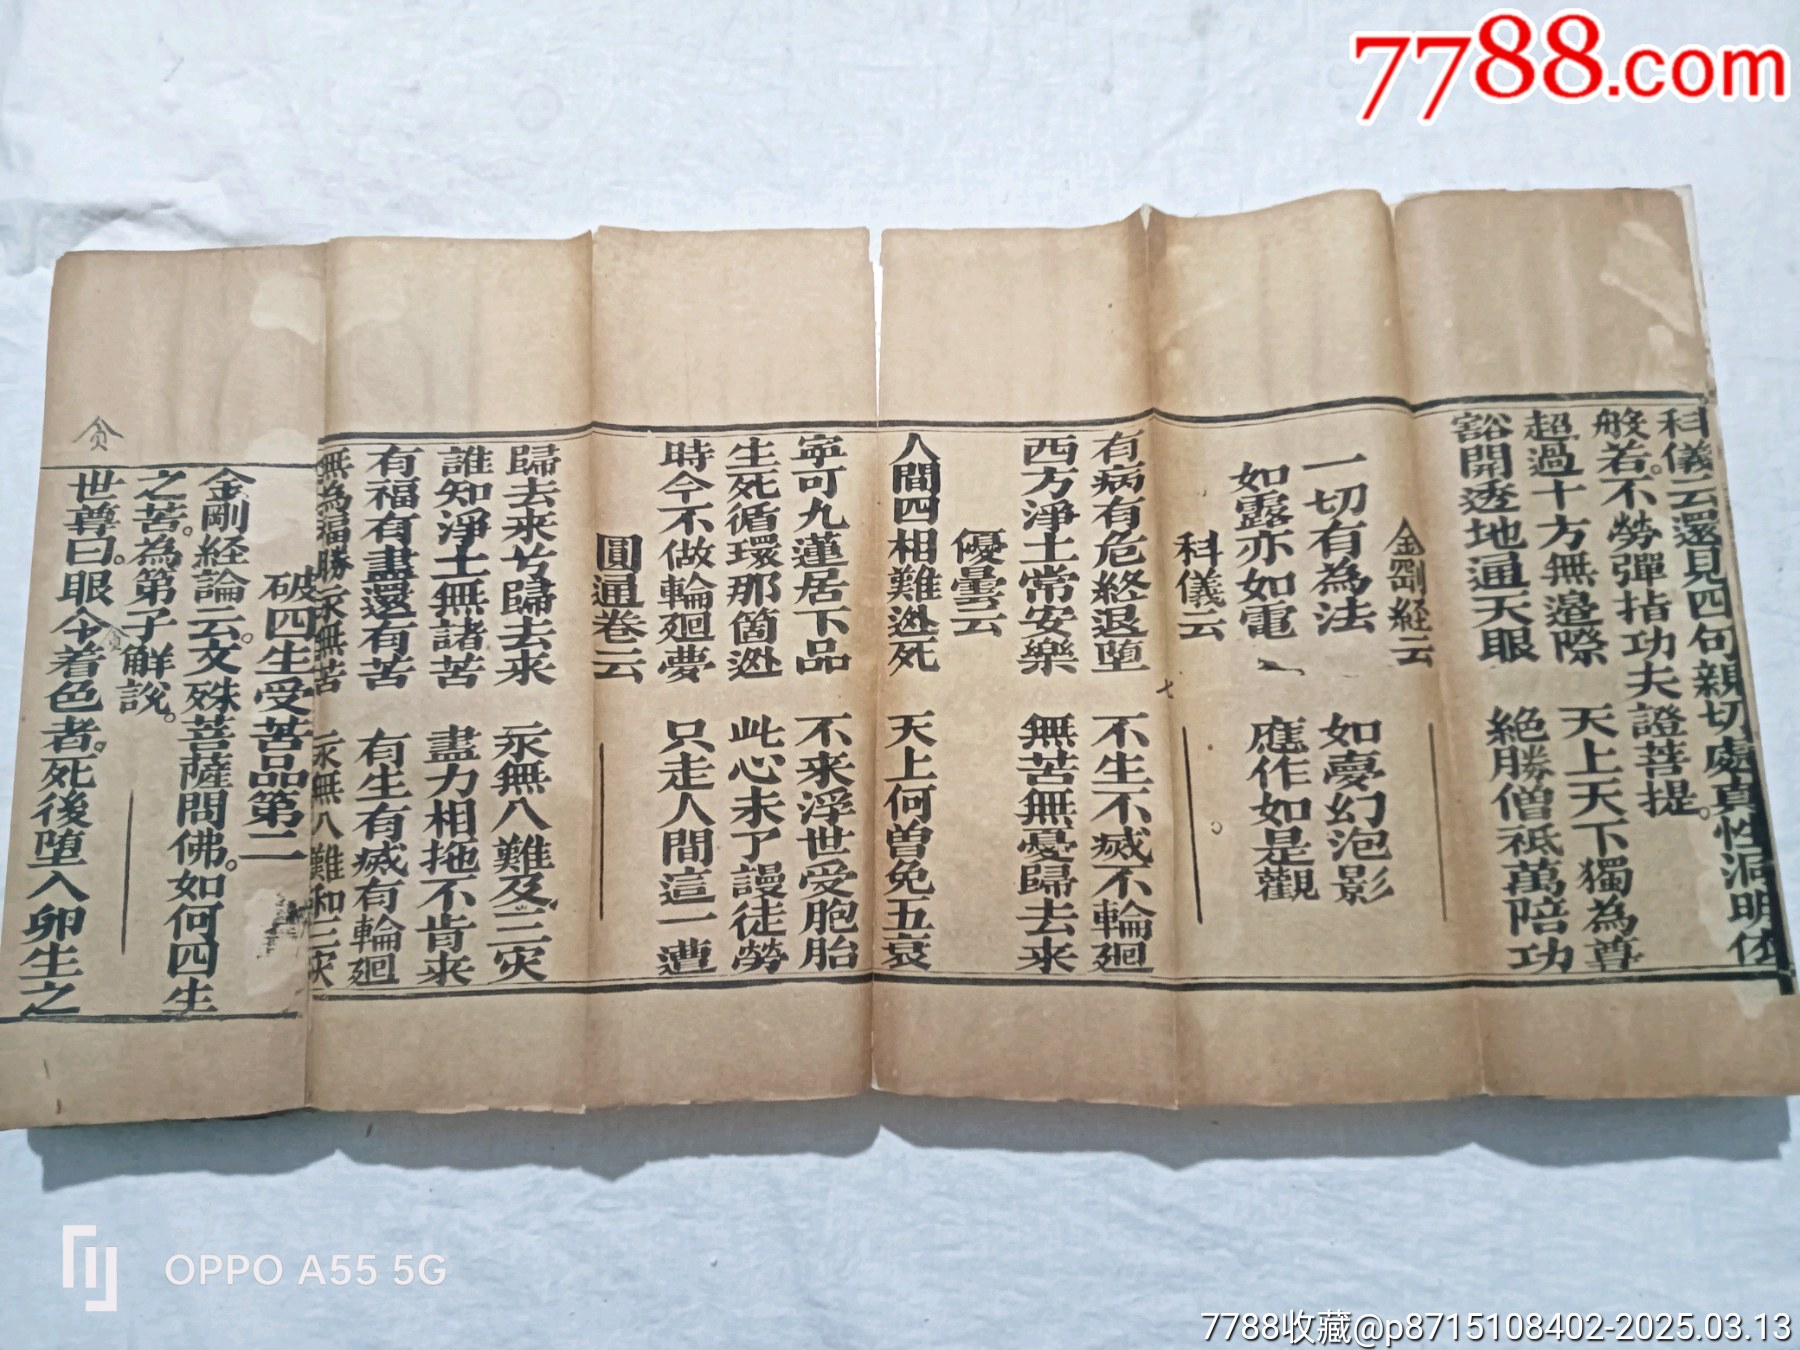 7788.com
科儀云還見四句親切處真性洞明依
般若。不勞彈指功夫證菩提。
超過十方無邊際 天上天下獨為尊
豁開透地通天眼 絶勝僧祇萬陪功
金剛経云
一切有為法 如夢幻泡影
如露亦如電 應作如是觀
科儀云
有病有危終退堕 不生不滅不輪廻
西方淨土常安樂 無苦無憂歸去来
優曇云
人間四相難迯死 天上何曾免五衰
寜可九蓮居下品 不来浮世受胞胎
生死循環那箇迯 此心未了謾徒勞
時今不做輪廻夢 只走人間這一遭
圓通卷云
歸去来兮歸去来 永無八難及三灾
誰知淨土無諸苦 盡力相拖不肯来
有福有盡還有苦 有生有滅有輪廻
無為福勝永無苦 永無八難和三灾
破四生受苦品第二
金剛経論云。文殊菩薩問佛。如何四生
之苦。為第子解説。
世尊曰。眼今着色者。死後堕入卵生之
OPPO A55 5G
7788收藏@p8715108402-2025.03.13